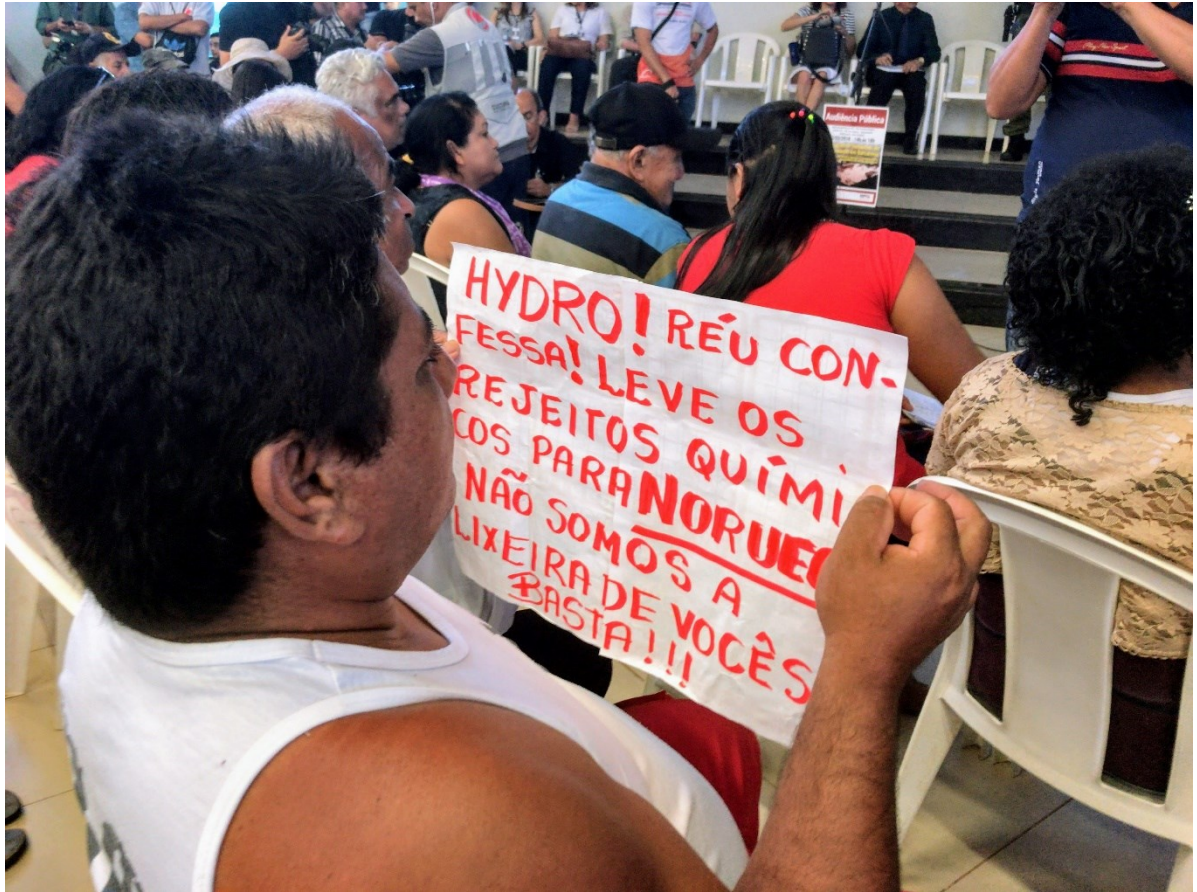 Audiência Pública
HYDRO! RÉU CON-
FESSA! LEVE OS
REJEITOS QUÍMI
COS PARA NORUEG
NÃO SOMOS A
LIXEIRA DE VOCÊS
BASTA!!!